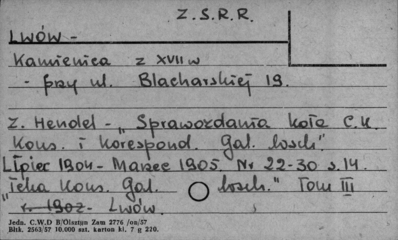 Z.S.R.R.
LWÓW -
Kamienica z XVII w
- przy ul. Blacharskiej 19.
Z. Hendel - „Sprawozdania koła C.K.
Kons. i Korespond. Gal. wsch."
Lipiec 1904 - Marzec 1905. Nr 22-30 s. 14.
"Teka Kons. Gal. wsch." Tom III
r. 1902 - Lwów.
Jedn. C.W.D B/Olsztyn Zam 2776 /on/57
Bltk. 2563/57 10.000 szt. karton kl. 7 g 220.